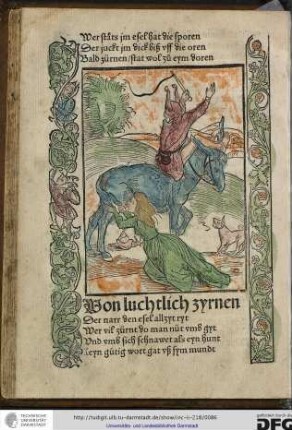 Wer stäts jm esel hat die sporen
Der juckt jm dick biß vff die oren
Bald zürnen / stat wol zů eym doren
Von luchtlich zyrnen
Der narr den esel allzyt ryt
Wer vil zürnt do man nüt vmb gyt
Vnd vmb sich schnawet als eyn hunt
Keyn gütig wort gat vß sym mundt
http://tudigit.ulb.tu-darmstadt.de/show/inc-ii-218/0086
Universitäts- und Landesbibliothek Darmstadt
DFG